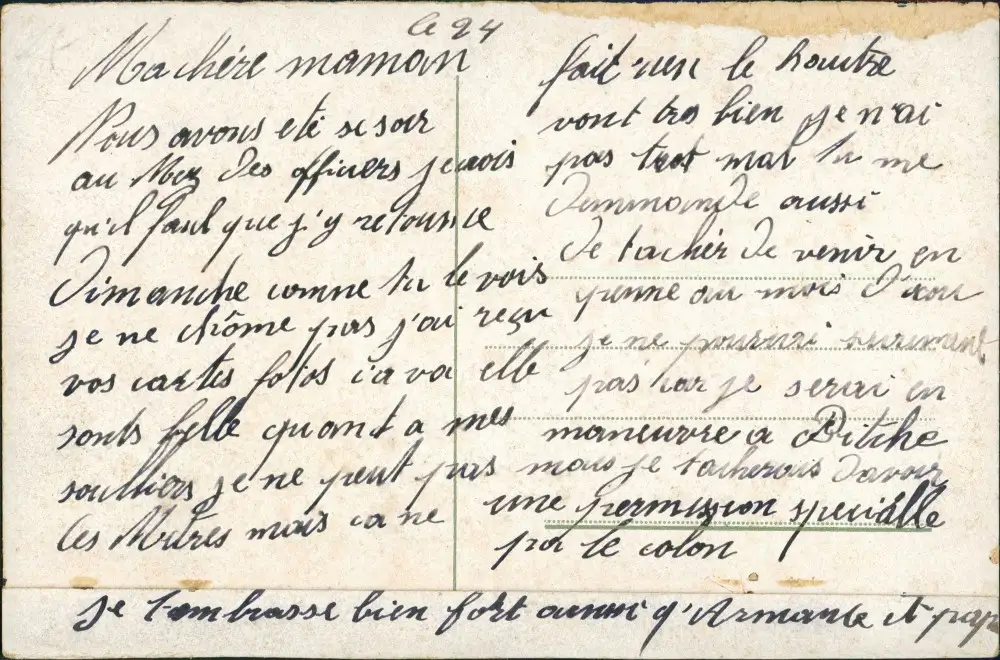 le 24
Ma chère maman
Nous avons eté se soir
au Mes des officiers je crois
qu'il faut que j'y retourne
Dimanche comne tu le vois
je ne chôme pas j'ai reçu
vos cartes fotos ca va elle
sonts belle quant a mes
soulliers je ne peut pas
les Mètres mais ca ne
fait rien le hautre
vont tres bien je n'ai
pas trot mal tu me
demmande aussi
de tacher de venir en
perme au mois d'aou
je ne pourrai surement
pas car je serai en
maneuvre a Bitche
mais je tacherais d'avoir
une permission speciálle
par le colon
je t'embrasse bien fort aunsi q'Armante et pap